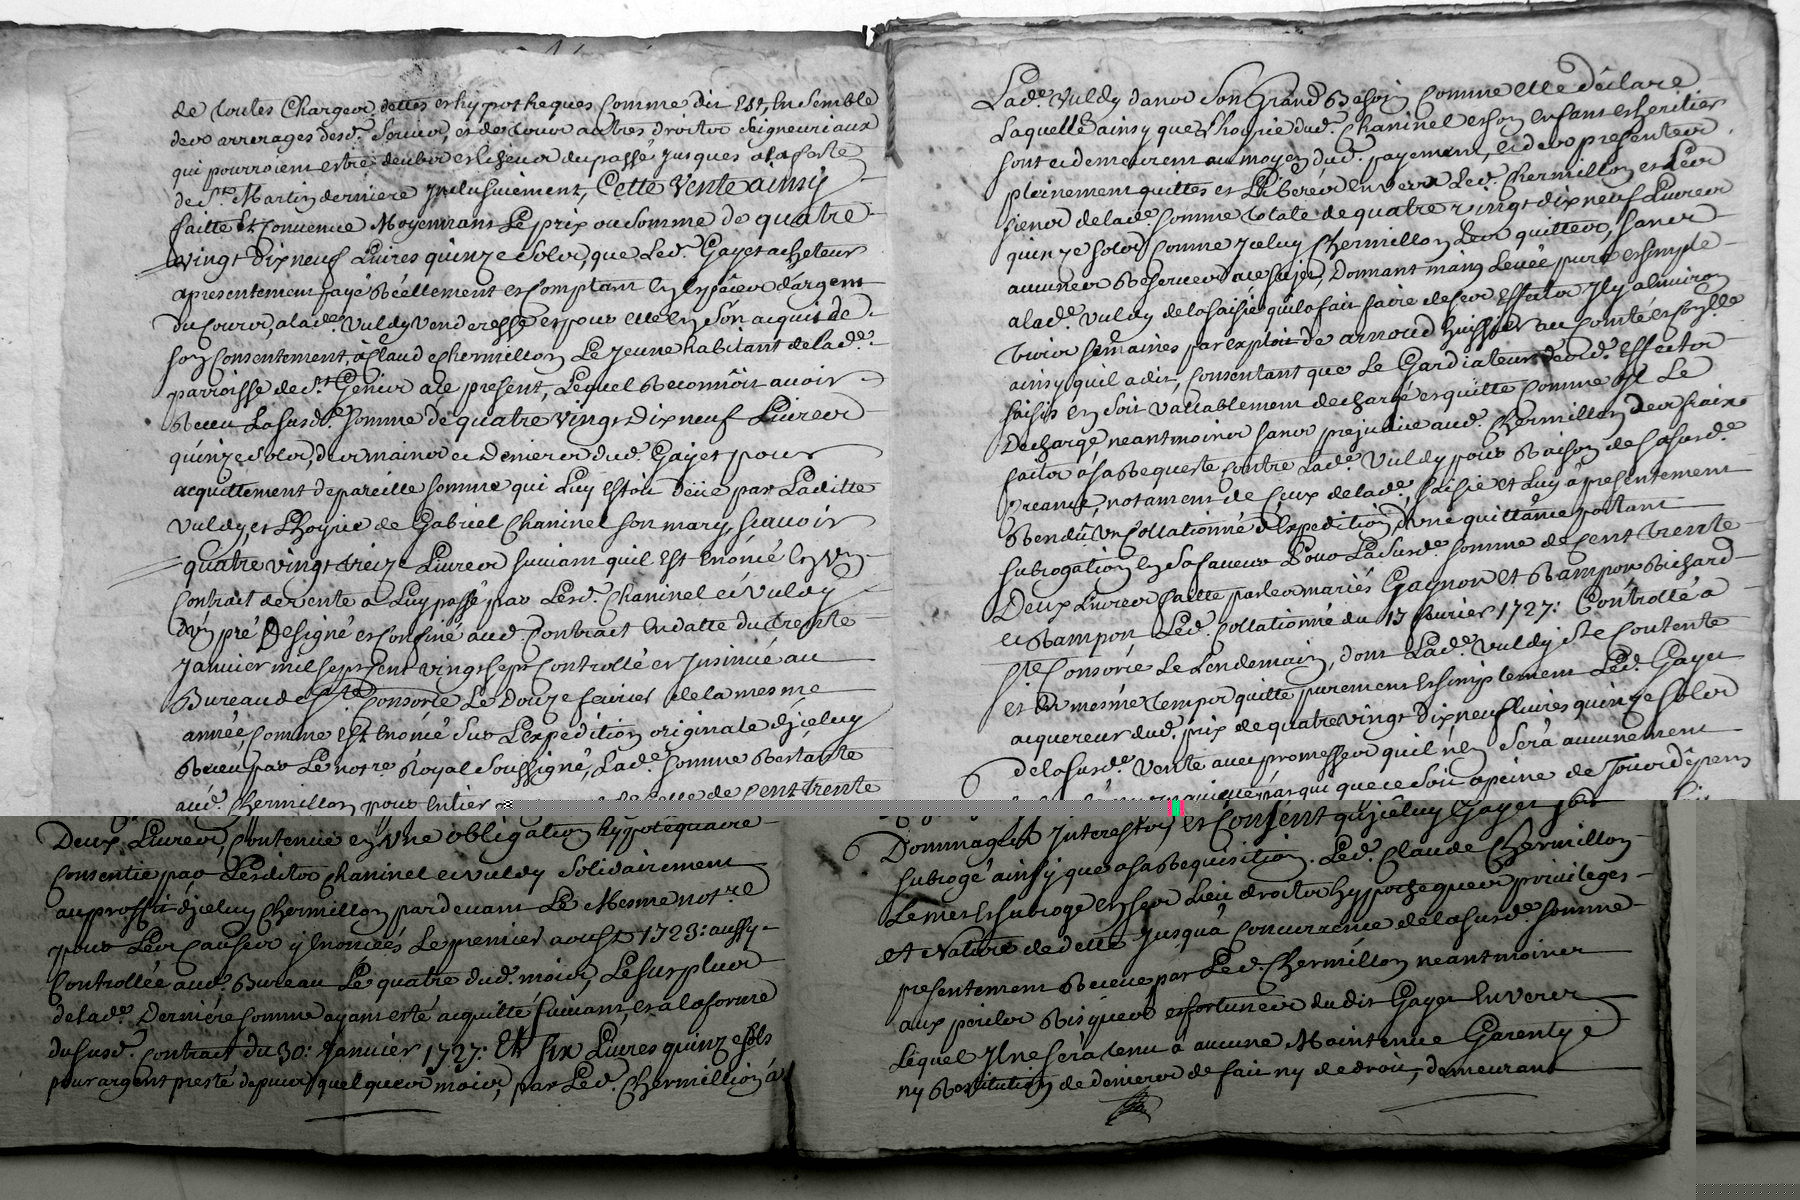 de toutes Charges dettes et hypotheques Comme dit Est, Ensemble
des arrerages desd. servis, et de tous autres droits seigneuriaux
qui pourroient estre deubs et Echeus du passé jusques a la feste
de St. Martin derniere Inclusivement, Cette Vente ainsy
faitte Et Convenue Moyennant Le prix ou somme de quatre
vingt Dix neuf Livres quinze sols, que Led. Gayet acheteur
apresentement payé Réellement et Comptant En Espèces d'argent
du Cours, a lade. Vuldy Venderesse et pour Elle En Son acquit de
son Consentement, à Claude Chermillon Le Jeune habitant de lad.e
parroisse de St. Genis ace present, Lequel Reconnôit avoir
Receu La susd.e somme de quatre Vingt Dix neuf Livres
quinze sols, des mains et deniers dud. Gayet pour
acquittement de pareille somme qui Luy Estoit deüe par Laditte
Vuldy, et L'hoyrie de Gabriel Chaninel son mary, sçavoir
quatre vingt treize Livres suivant quil Est Enoncé En Un
Contrait de vente a Luy passé par Lesd. Chaninel et Vuldy
d'un pré Designé et Confiné aud. Contrait En datte du trente
Janvier mil sept Cent vingt sept Controllé et Insinué au
Bureau de Ste. Consorce Le Douze fevrier de la mesme
année, Comme Est Enoncé sur L'expedition originale d'jceluy
Receu par Le notre. Royal Soussigné, Lad.e somme Restante
aud. Chermillon pour Entier de Celle de Cent trente
Deux Livres, Contenue en Une obligation hypotequaire
Consentie par Lesdits Chaninel et Vuldy Solidairement
au proffit d'jceluy Chermillon pardevant Le Mesme not.re
pour Les Causes y Enoncées Le premier aoust 1723: aussy
Controllée aud. Bureau Le quatre dud. mois, Le surplus
de lad.e Derniére somme ayant esté acquitté suivant, et a la forme
du susd. Contrait du 30: Janvier 1727: Et six Livres quinze sols
pour argent presté depuis quelques mois, par Led. Chermillion à
Lad.e Vuldy dans son Grand Besoin Comme Elle déclare
Laquelle ainsy que L'hoyrie dud. Chaninel et son Enfant et heritier
sont et demeurent au moyen dud. payement, et des presentes
pleinement quittes et Libérés Envers Led. Chermillon et Les
siens de lad.e somme totale de quatre vingt dix neuf Livres
quinze sols Comme Jceluy Chermillon Les quittes, sans
aucunes Reserves ace sujet, Donnant main Levée pure et simple
a lad.e Vuldy de la saisie quil a fait faire de ses Effets Il y a Environ
trois semaines par Exploit de arnoud huissier au Comté
ainsy quil a dit, Consentant que Le Gardiateur desd. Effets
saisis En soit Vallablement dechargé et quitte Comme Il Le
Decharge neantmoins sans prejudice aud. Chermillon des fraix
faits à sa Requeste Contre Lad.e Vuldy pour Raison de sa susd.e
Creance, notament de Ceux de lad.e saisie et Luy a presentement
Rendû Un Collationné d'Expedition d'Une quittance portant
subrogation En sa faveur Pour La susd.e somme de Cent trente
Deux Livres faitte par les mariés Gagnon Et Rampon Richard
et Rampon Led. Collationné du 17 fevrier 1727: Controllé à
Ste Consorce Le Lendemain, dont Lad.e Vuldy Est Contente
et En mesme temps quitte purement Et simplement Led. Gayet
acquereur dud. prix de quatre vingt Dix neuf Livres quinze sols
de la susd.e Vente avec promesse quil n'En Sera aucunement
par qui que ce soit a peine de Tous dépens
Dommages Interests, et Consent qu'jceluy Gayet soit
subrogé ainsy que a sa Requisition. Led. Claude Chermillon
Le met Et subroge En ses Lieu droits hypotheques privileges
et Nature de dette Jusqu'à Concurrence de la susd.e somme
presentement Receüe par Led. Chermillon neantmoins
aux perils Risques et fortunes du dit Gayet Envers
Lequel Il ne sera tenu a aucune Maintenue Garentye
ny Restitution de deniers de fait ny de droit, demeurant